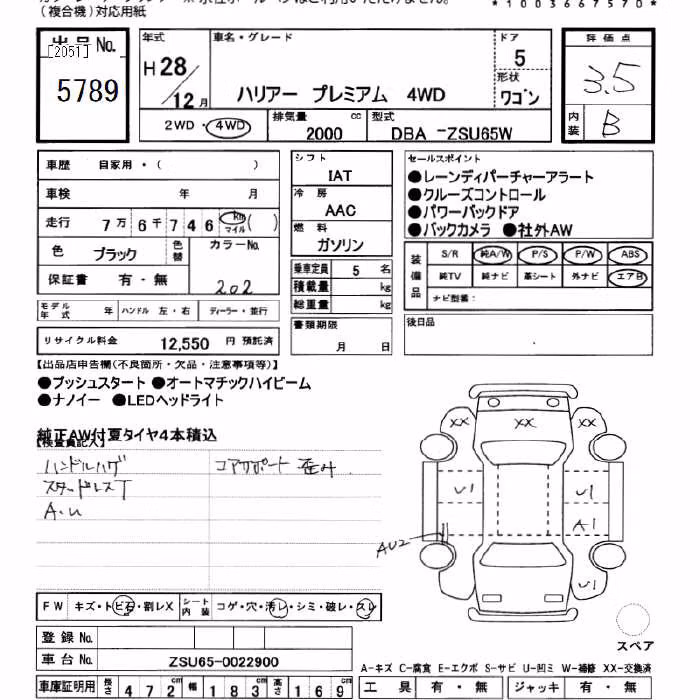 (複合機)対応用紙
*1003667570*
出品No.
[2051]
5789
年式
H28/12月
車名・グレード
ハリアー プレミアム 4WD
ドア
5
形状
ワゴン
2WD・4WD
排気量
2000 cc
型式
DBA -ZSU65W
評価点
3.5
内装
B
車歴 自家用・( )
車検 年 月
走行 7万6千746 km マイル ( )
色 ブラック 色替 カラーNo.
202
保証書 有・無
モデル年式 年 ハンドル 左・右 ディーラー・並行
リサイクル料金 12,550 円 預託済
シフト
IAT
冷房
AAC
燃料
ガソリン
乗車定員 5 名
積載量 kg
総重量 kg
書類期限
月 日
セールスポイント
●レーンディパーチャーアラート
●クルーズコントロール
●パワーバックドア
●バックカメラ ●社外AW
装備品
S/R 純A/W P/S P/W ABS
純TV 純ナビ 革シート 外ナビ エアB
ナビ型番:
後日品
【出品店申告欄(不良箇所・欠品・注意事項等)】
●プッシュスタート ●オートマチックハイビーム
●ナノイー ●LEDヘッドライト
純正AW付夏タイヤ4本積込
【検査員記入】
ハンドルハゲ
スタッドレスT
A.U
コアサポート 歪み
XX XX
U1 U1
A1
AU2
U1
スペア
FW キズ・トビ石・割レX シート内装 コゲ・穴・汚レ・シミ・破レ・スレ
登録No.
車台No. ZSU65-0022900
A-キズ C-腐食 E-エクボ S-サビ U-凹ミ W-補修 XX-交換済
車庫証明用 長さ 472 cm 幅 183 cm 高さ 169 cm
工具 有・無 ジャッキ 有・無